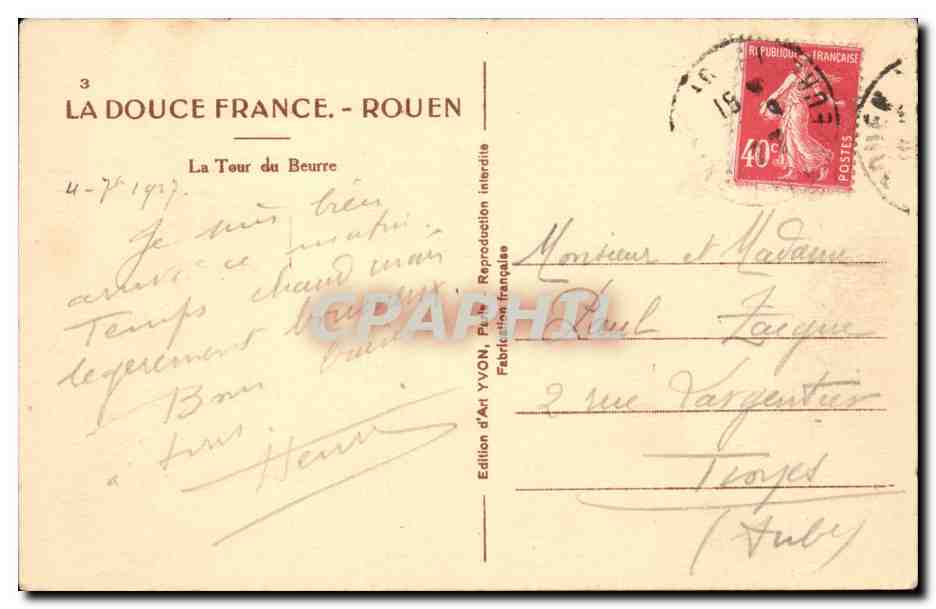 3
LA DOUCE FRANCE. - ROUEN
La Tour du Beurre
4-7bre 1927.
Je suis bien
arrivé ce matin.
Temps chaud mais
légèrement brumeux.
Bons
à tous.
Henri
Edition d'Art YVON, Paris. Reproduction interdite
Fabrication française
REPUBLIQUE FRANÇAISE
40c
POSTES
EURE
Monsieur et Madame
Paul Zaigue
2 rue Largentier
Troyes
(Aube)
CPAPHIL